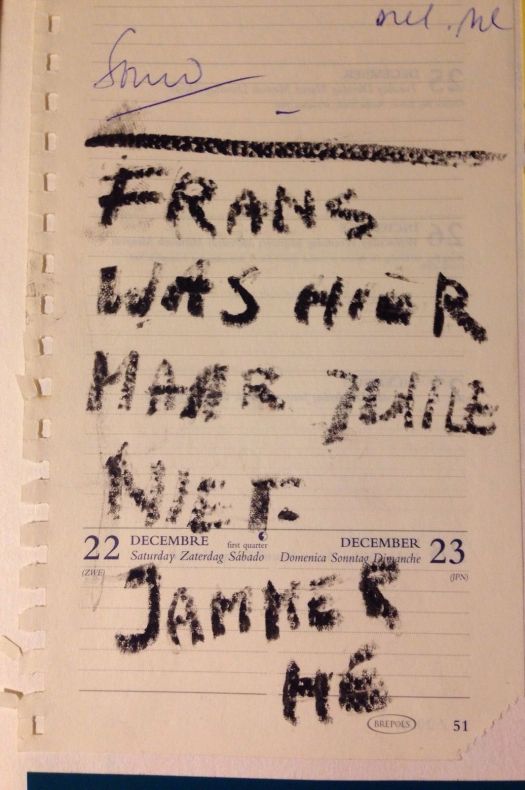 FRANS
WAS HIER
MAAR JULLIE
NIET
22 DECEMBRE first quarter DECEMBER 23
Saturday Zaterdag Sábado Domenica Sonntag Dimanche
(ZWE) (JPN)
JAMMER
HÉ
BREPOLS 51